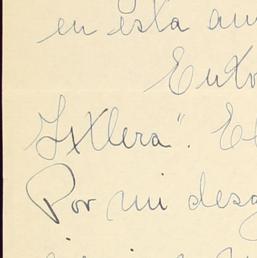 en ésta am
Ento
Ixtlera". El
Por mi desg